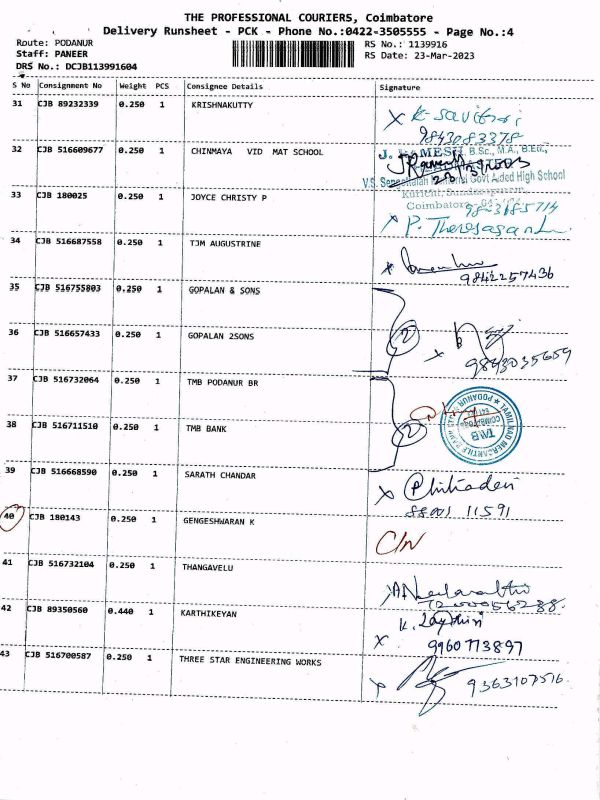 THE PROFESSIONAL COURIERS, Coimbatore
Delivery Runsheet - PCK - Phone No.:0422-3505555 - Page No.:4
Route: PODANUR
Staff: PANEER
DRS No.: DCJB113991604
RS No.: 1139916
RS Date: 23-Mar-2023
S No Consignment No Weight PCS Consignee Details Signature
31 CJB 89232339 0.250 1 KRISHNAKUTTY
X K-Savitri
9843083378
32 CJB 516609677 0.250 1 CHINMAYA VID MAT SCHOOL
J. RAMESH, B.Sc., M.A., B.Ed.,
Aided High School
Coimbatore
33 CJB 180025 0.250 1 JOYCE CHRISTY P
X P.
34 CJB 516687558 0.250 1 TJM AUGUSTRINE
X
9842257436
35 CJB 516755803 0.250 1 GOPALAN & SONS
36 CJB 516657433 0.250 1 GOPALAN 2SONS
2 X
9843035659
37 CJB 516732064 0.250 1 TMB PODANUR BR
TAMILNAD MERCANTILE BANK
PODANUR
TMB
38 CJB 516711510 0.250 1 TMB BANK
2
39 CJB 516668590 0.250 1 SARATH CHANDAR
X
11591
40 CJB 180143 0.250 1 GENGESHWARAN K
C/N
41 CJB 516732104 0.250 1 THANGAVELU
42 CJB 89350560 0.440 1 KARTHIKEYAN
X K.
9960773897
43 CJB 516700587 0.250 1 THREE STAR ENGINEERING WORKS
X 9363107516